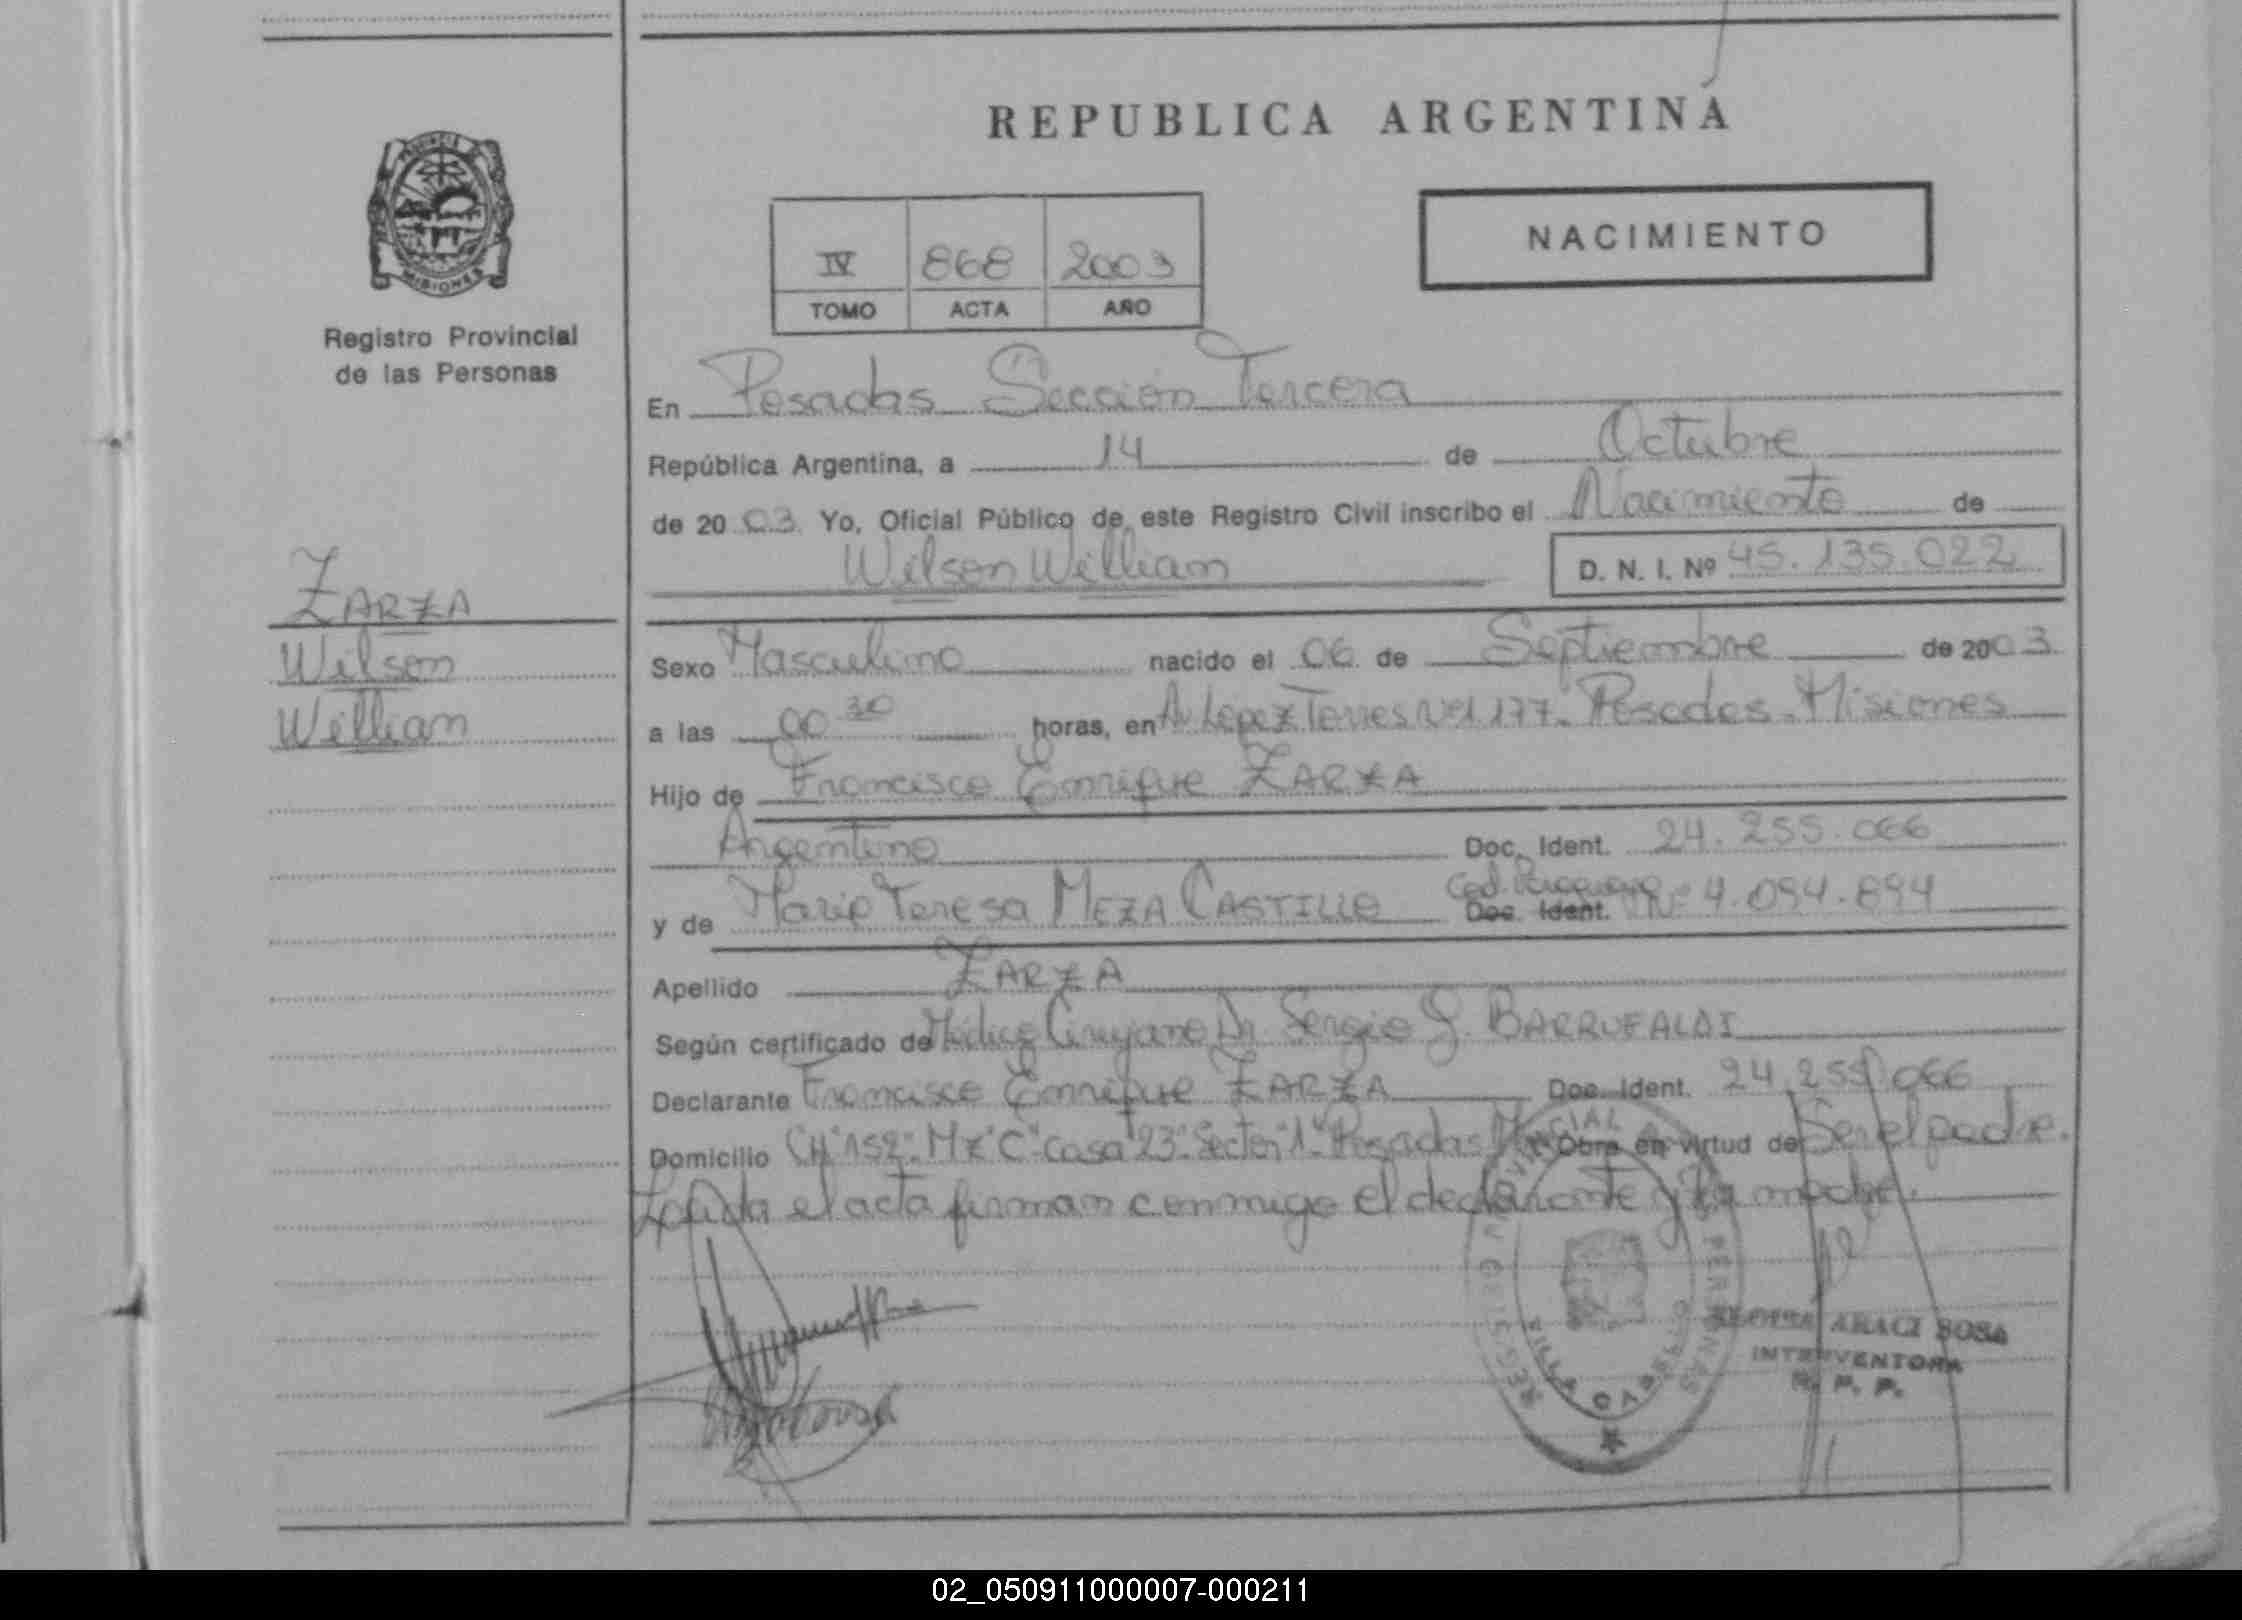 REPUBLICA ARGENTINA
PROVINCIA DE
MISIONES
Registro Provincial
de las Personas
NACIMIENTO
IV 868 2003
TOMO ACTA AÑO
En Posadas Sección Tercera
República Argentina, a 14 de Octubre
de 2003. Yo, Oficial Público de este Registro Civil inscribo el Nacimiento de
Wilson Willian D. N. I. Nº 45.135.022
ZARZA
Wilson
Willian
Sexo Masculino nacido el 06 de Septiembre de 2003
a las 00 30 horas, en Av Lopez Torres Nº 1177. Posadas. Misiones
Hijo de Francisco Enrique ZARZA
Argentino Doc. Ident. 24.255.066
y de María Teresa MEZA CASTILLO Ced. Paraguaya Doc. Ident. Nº 4.094.894
Apellido ZARZA
Según certificado de Médico Cirujano Dr. Sergio J. BARRUFALDI
Declarante Francisco Enrique ZARZA Doc. Ident. 24.255.066
Domicilio CH"152"-Mz"C"-Casa"23"-Sector"1"-Posadas Obra en virtud de Ser el padre.
Leída el acta firman conmigo el declarante y la madre.
ARACI SOSA
INTERVENTORA
R. P. P.
02_050911000007-000211